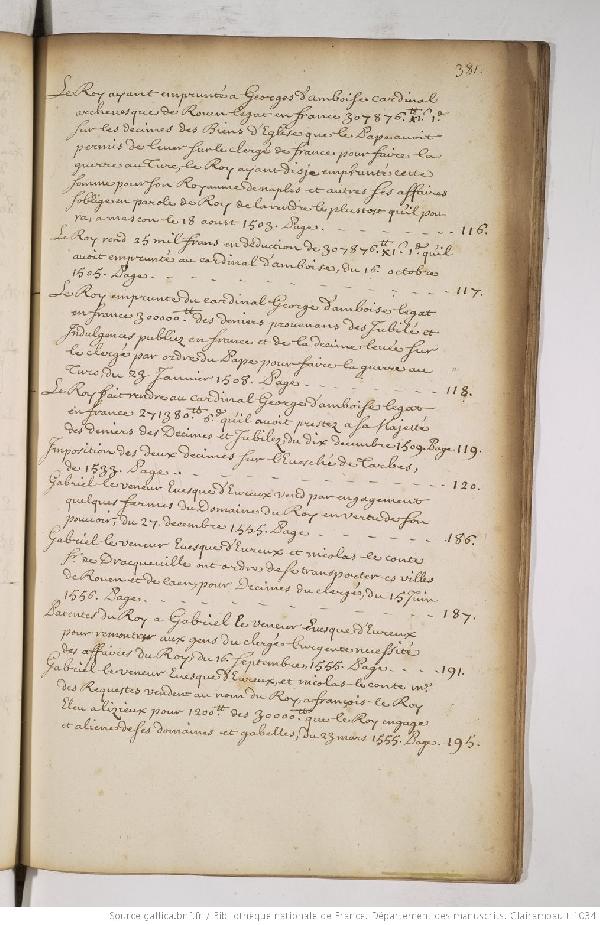 381.
Le Roy ayant emprunté a Georges d'amboise cardinal
archevesque de Rouen legat en france 307876.tt XI.s 1.d
sur les decimes des Biens d'Eglise que le Pape avoit
permis de lever sur le clergé de france pour faire la
guerre au Turc, le Roy ayant disje emprunté cette
somme pour son Royaume de naples et autres ses affaires
s'oblige en parole de Roy de la rendre le plustost qu'il pou
ra, a mascon le 18 aoust 1503. Page. 116.
Le Roy rend 25 mil frans en deduction de 307876.tt XI.s 1.d qu'il
avoit emprunté au cardinal d'amboise, du 16 octobre
1505. Page. 117.
Le Roy emprunte du cardinal George d'amboise legat
en france 300000.tt des deniers provenans des Jubilé et
Indulgences publiez en france et de la decime levée sur
le clergé par ordre du Pape pour faire la guerre au
Turc, du 23 Janvier 1508. Page 118.
Le Roy fait rendre au cardinal George d'amboise legat
en france 271380.tt 6.d qu'il avoit prestez a sa Majesté
des deniers des Decimes et Jubilez, du dix decembre 1509. Page. 119.
Imposition des deux decimes sur l'Evesché de Tarbes,
de 1533. Page. 120.
Gabriel le veneur Evesque d'Evreux vend par engagement
quelques fermes du Domaine du Roy en vertu de son
pouvoir, du 27. decembre 1555. Page 186.
Gabriel le veneur Evesque d'Evreux et nicolas le conte
sr. de Dracqueville ont ordre de se transporter es villes
de Rouen et de Caen, pour Decimes du clergé, du 15 Juin
1556. Page. 187.
Patentes du Roy a Gabriel le veneur Evesque d'Evreux
pour remontrer aux gens du clergé l'urgente necessité
des affaires du Roy, du 16 Septembre 1556. Page 191.
Gabriel le veneur Evesque d'Evreux, et nicolas le conte m.e
des Requestes vendent au nom du Roy a françois le Roy
Eleu a lizieux pour 1200.tt des 30000.tt que le Roy engage
et aliene de ses domaines et gabelles, du 23 mars 1555. Page. 195.
Source gallica.bnf.fr / Bibliothèque nationale de France. Département des manuscrits. Clairambault 1034